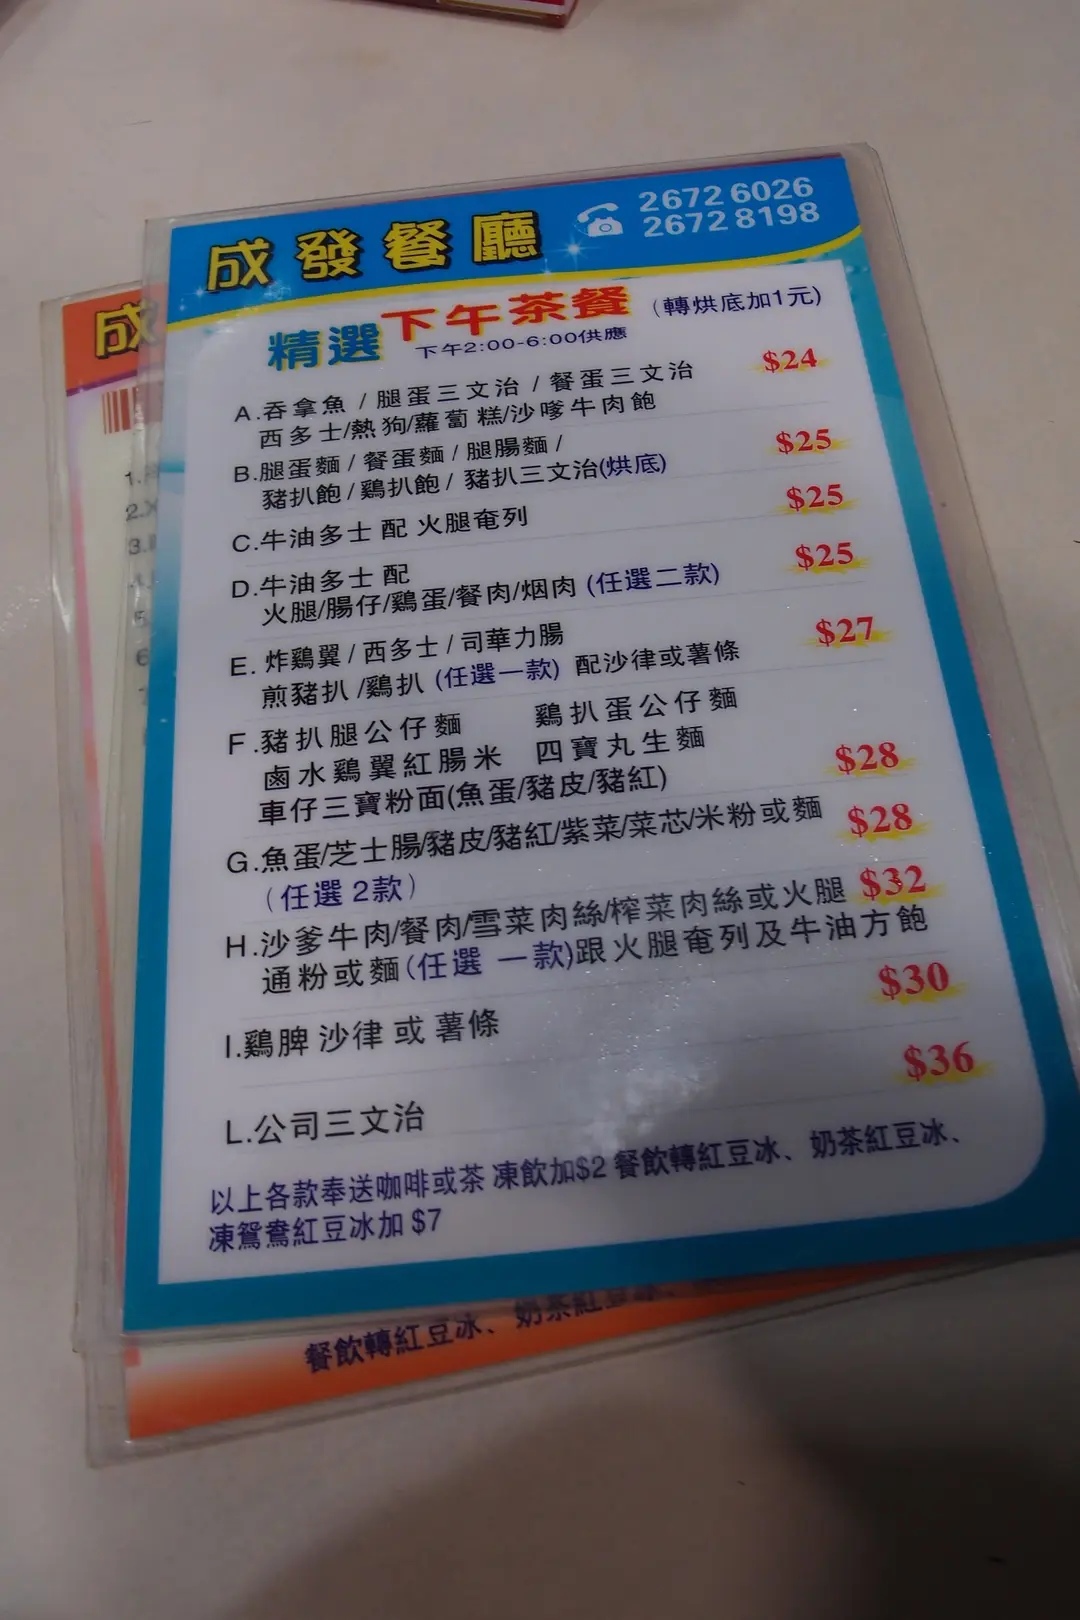 成發餐廳
2672 6026
2672 8198
精選下午茶餐 (轉烘底加1元)
下午2:00-6:00供應
A.吞拿魚 / 腿蛋三文治 / 餐蛋三文治 $24
西多士/熱狗/蘿蔔糕/沙嗲牛肉飽
B.腿蛋麵 / 餐蛋麵 / 腿腸麵 / $25
豬扒飽 / 鷄扒飽 / 豬扒三文治(烘底)
C.牛油多士 配 火腿奄列 $25
D.牛油多士 配 $25
火腿/腸仔/鷄蛋/餐肉/烟肉 (任選二款)
E. 炸鷄翼 / 西多士 / 司華力腸 $27
煎豬扒 /鷄扒 (任選一款) 配沙律或薯條
F.豬扒腿公仔麵 鷄扒蛋公仔麵
鹵水鷄翼紅腸米 四寶丸生麵 $28
車仔三寶粉面(魚蛋/豬皮/豬紅)
G.魚蛋/芝士腸/豬皮/豬紅/紫菜/菜芯/米粉或麵 $28
(任選2款)
H.沙爹牛肉/餐肉/雪菜肉絲/榨菜肉絲或火腿 $32
通粉或麵(任選 一款)跟火腿奄列及牛油方飽
I.鷄脾 沙律 或 薯條 $30
L.公司三文治 $36
以上各款奉送咖啡或茶 凍飲加$2 餐飲轉紅豆冰、奶茶紅豆冰、
凍鴛鴦紅豆冰加 $7
成
1.
2.
3.
5.
6
餐飲轉紅豆冰、奶茶紅豆冰、